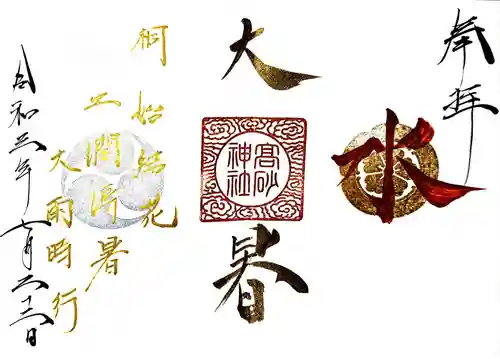 奉拝
水
大
高砂
神社
暑
桐始結花
土潤溽暑
大雨時行
令和五年七月二十三日